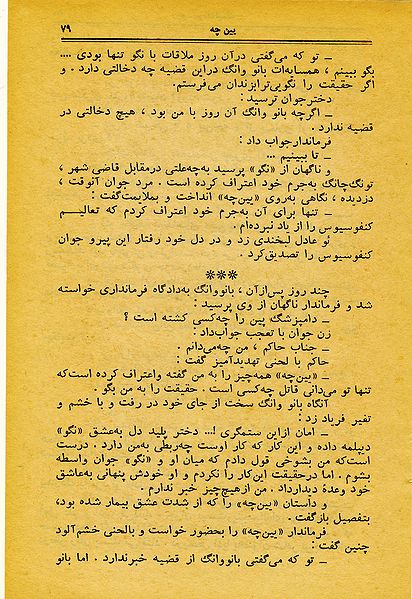 یین چه
۷۹
ــ تو که می‌گفتی درآن روز ملاقات با نگو تنها بودی ....
بگو ببینم ، همسایه‌ات بانو وانگ دراین قضیه چه دخالتی دارد . و
اگر حقیقت را نگویی‌ترابزندان می‌فرستم.
دخترجوان ترسید :
ــ اگرچه بانو وانگ آن روز با من بود ، هیچ دخالتی در
قضیه ندارد .
فرماندارجواب داد :
ــ تا ببینیم ...
و ناگهان از «نگو» پرسید به‌چه‌علتی درمقابل قاضی شهر ،
تونگ‌چانگ به‌جرم خود اعتراف کرده است . مرد جوان آنوقت ،
دزدیده ، نگاهی به‌روی «یین‌چه» انداخت و بملایمت‌گفت :
ــ تنها برای آن به‌جرم خود اعتراف کردم که تعالیـــم
کنفوسیوس را از یاد نبرده‌ام .
نو عادل لبخندی زد و در دل خود رفتار این پیرو جوان
کنفوسیوس را تصدیق‌کرد .
***
چند روز پس‌ازآن ، بانووانگ به‌دادگاه فرمانداری خواسته
شد و فرماندار ناگهان از وی پرسید :
ــ دامپزشگ پین را چه‌کسی کشته است ؟
زن جوان با تعجب جواب‌داد :
ــ جناب حاکم ، من چه‌می‌دانم .
حاکم با لحنی تهدیدآمیز گفت :
ــ «یین‌چه» همه‌چیز را به من گفته واعتراف کرده است‌که
تنها تو می‌دانی قاتل چه‌کسی است . حقیقت را به من بگو .
آنگاه بانو وانگ سخت از جای خود در رفت و با خشم و
تغیر فریاد زد :
ــ امان ازاین ستمگری !... دختر پلید دل به‌عشق «نگو»
دیپلمه داده و این کار که کار اوست چه‌ربطی به‌من دارد . درست
است‌که من بشوخی قول دادم که میان او و «نگو» جوان واسطه
بشوم . اما درحقیقت این‌کار را نکردم و او خودش پنهانی به‌عاشق
خود وعدهٔ دیدارداد . من ازهیچ‌چیز خبر ندارم .
و داستان «یین‌چه» را که از شدت عشق بیمار شده بود،
بتفصیل بازگفت .
فرماندار «یین‌چه» را بحضور خواست و بالحنی خشم‌آلود
چنین گفت :
ــ تو که می‌گفتی بانووانگ از قضیه خبرندارد . اما بانو